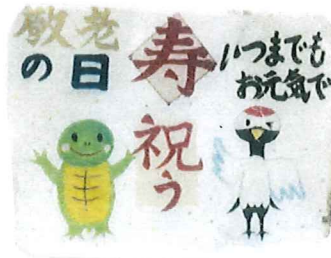 敬老
の日
寿
祝う
いつまでも
お元気で